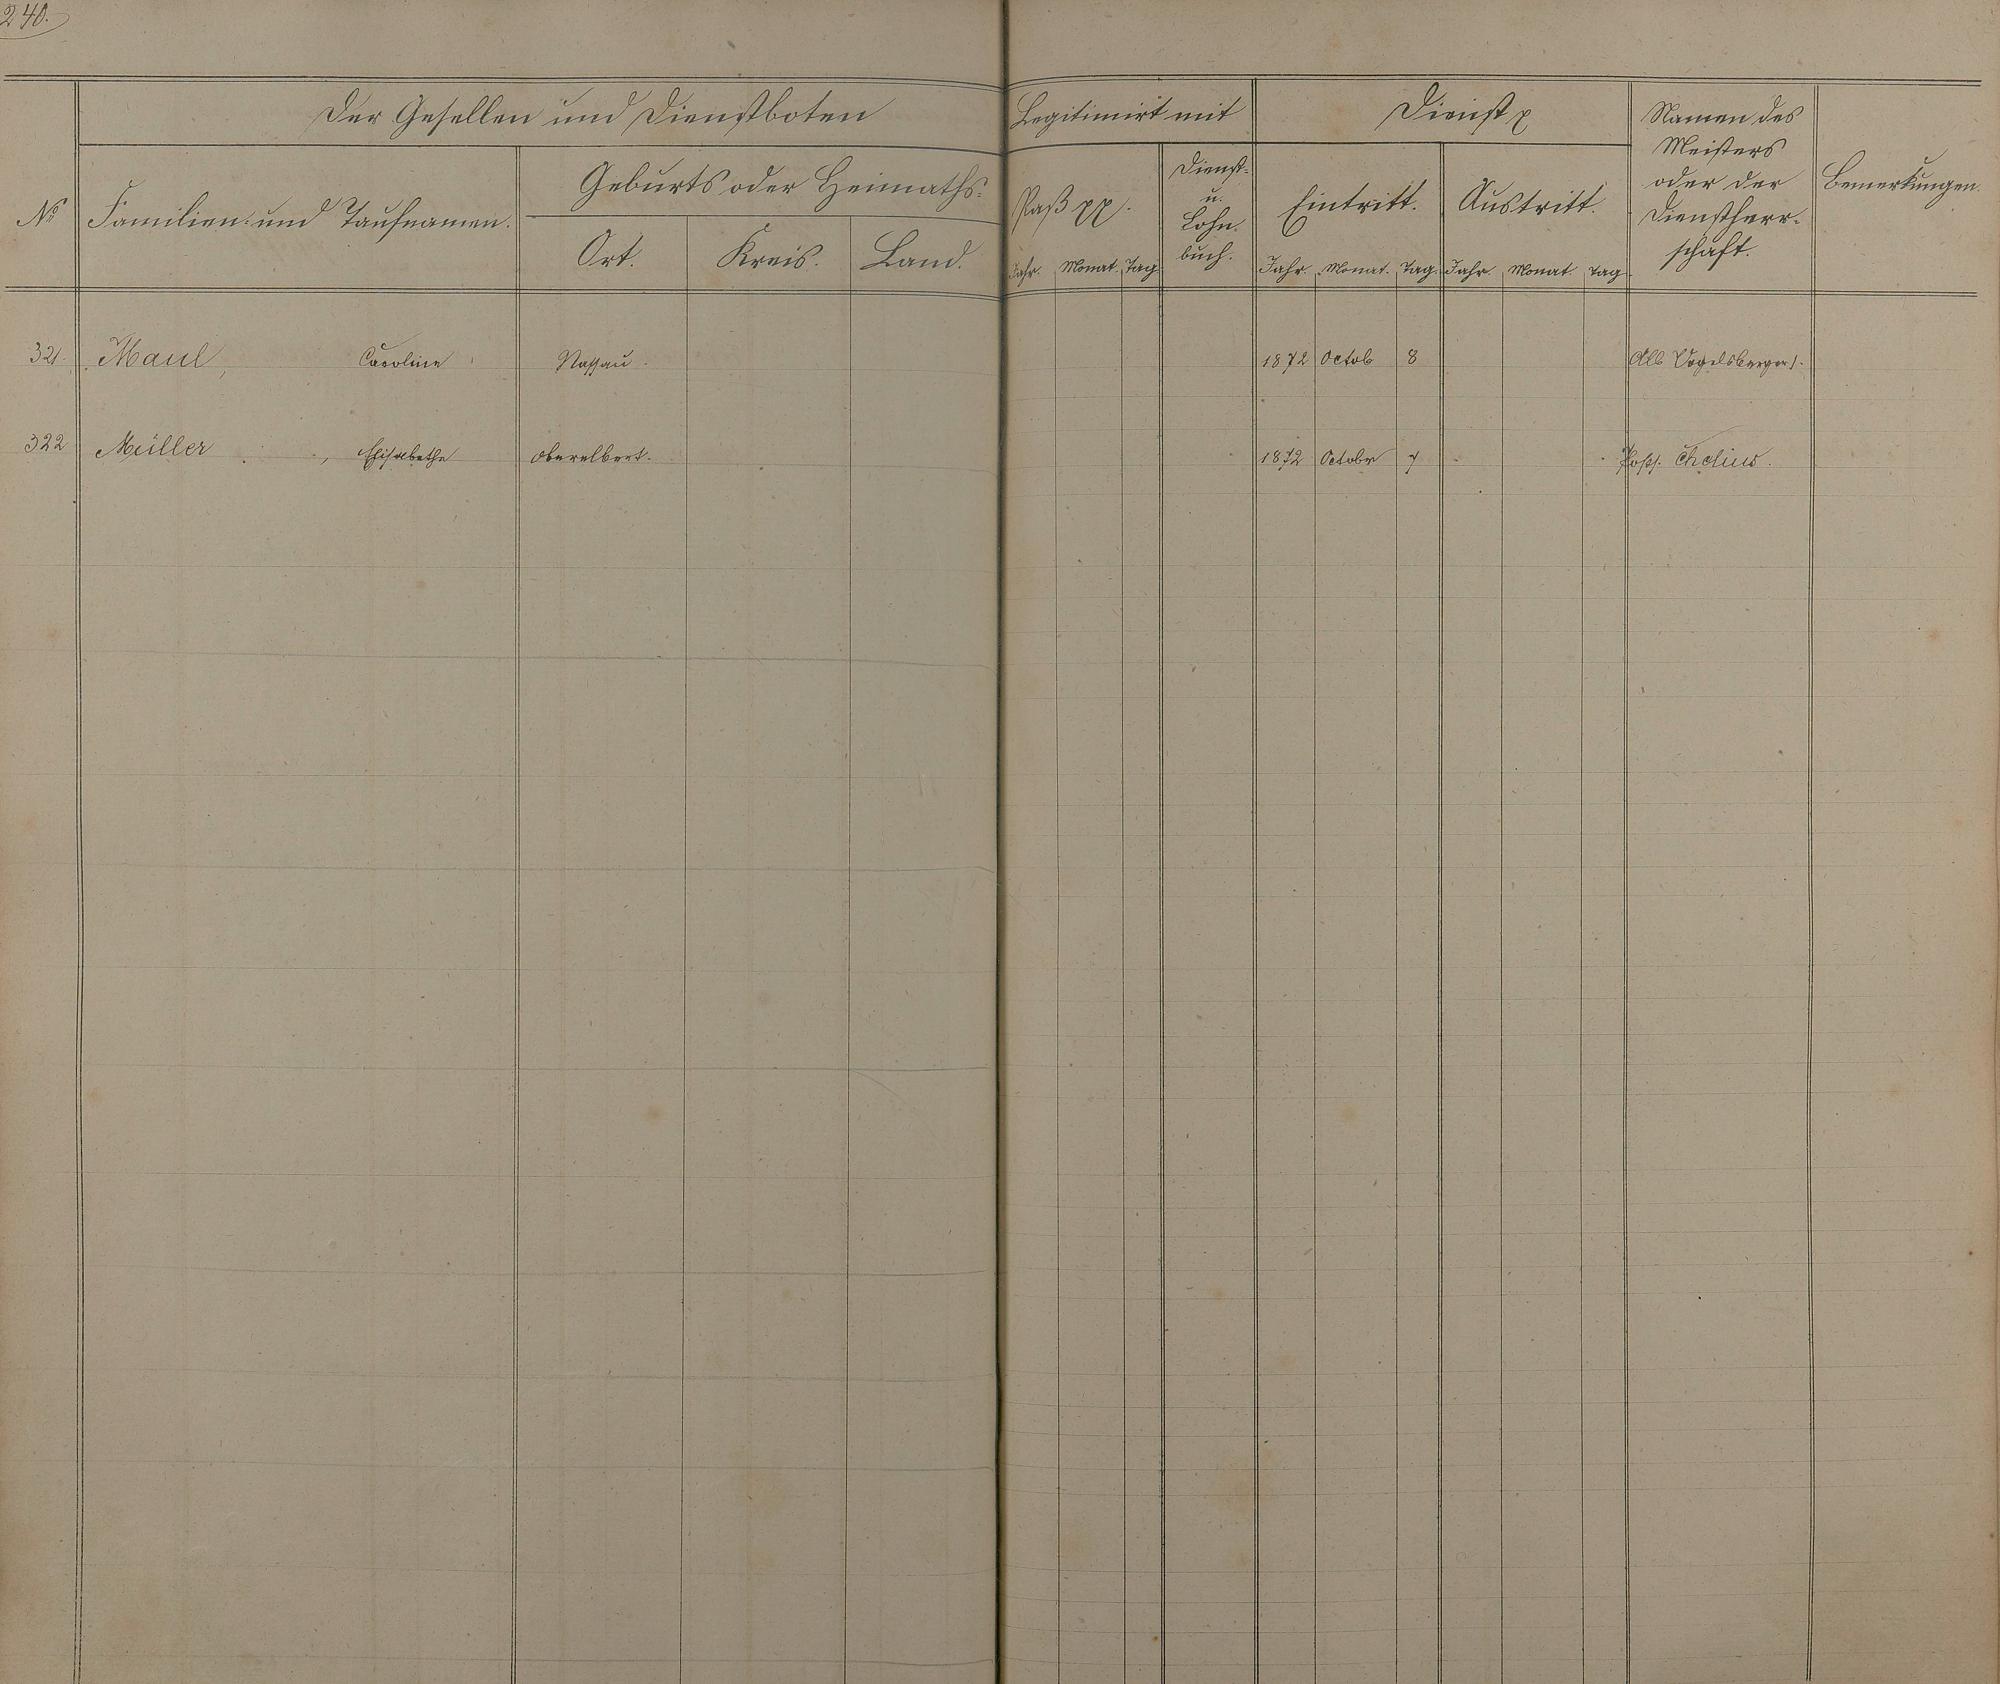 240.
Der Gesellen und Dienstboten
Legitimirt mit
Dienst
Namen des
Meisters
oder der
Dienstherr-
schaft.
Bemerkungen.
No
Familien- und Taufnamen.
Geburts oder Heimaths-
Ort. Kreis. Land.
Paß pp.
Dienst-
u.
Lohn-
buch.
Eintritt. Austritt.
Jahr. Monat. Tag
Jahr. Monat. Tag. Jahr. Monat. Tag
321. Maul, Caroline Nassau. 1872 Octob 8 Alb Vogelsberger
322 Müller, Elisabethe Oberelbert. 1872 Octobr 7 Chelius.